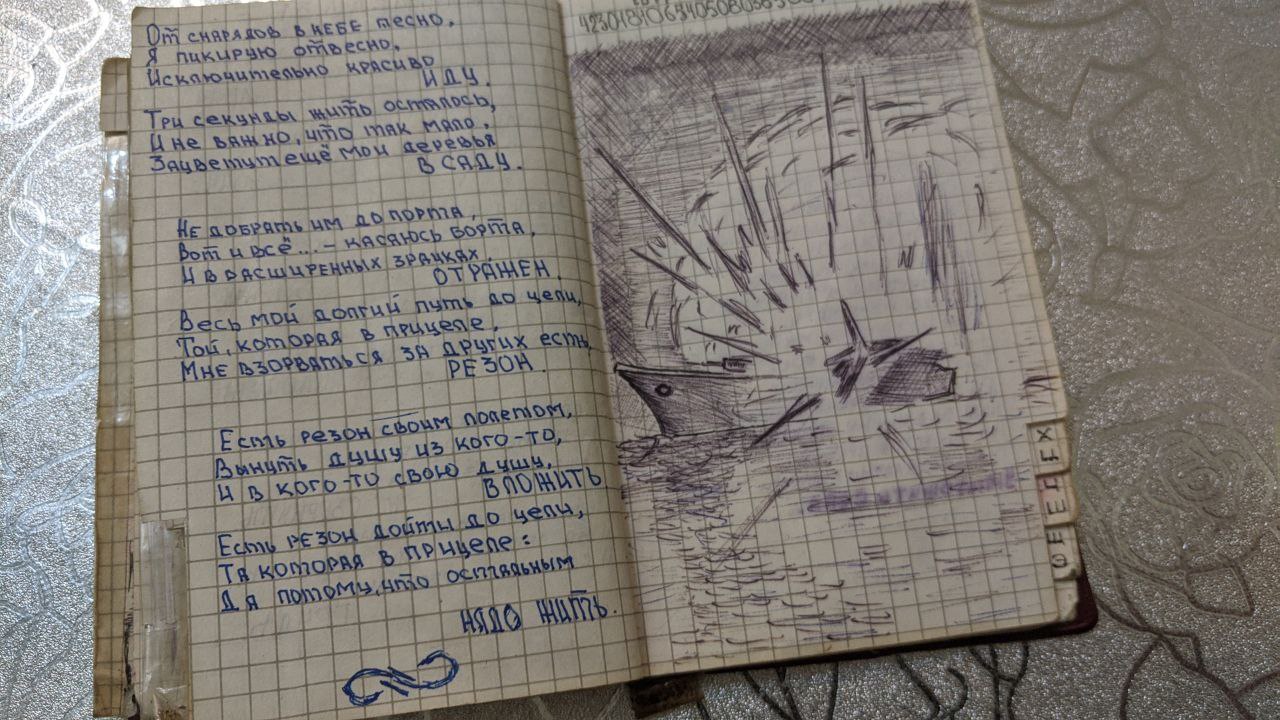 От снарядов в небе тесно,
Я пикирую отвесно,
Исключительно красиво
иду
Три секунды жить осталось,
И не важно, что так мало,
Зацветут ещё мои деревья
в саду.
Не добрать им до порта,
Вот и всё... – касаюсь борта,
И в расширенных зрачках
отражен.
Весь мой долгий путь до цели,
Той, которая в прицеле,
Мне взорваться за других есть
резон.
Есть резон своим полетом,
Вынуть душу из кого-то,
И в кого-то свою душу,
вложить
Есть резон дойти до цели,
Та которая в прицеле:
Да потому, что остальным
надо жить.
Х